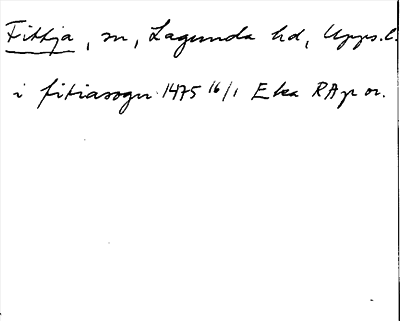 Fittja, sn, Lagunda hd, Upps.l.
i fitiasogn 1475 16/1 Eka RAp or.